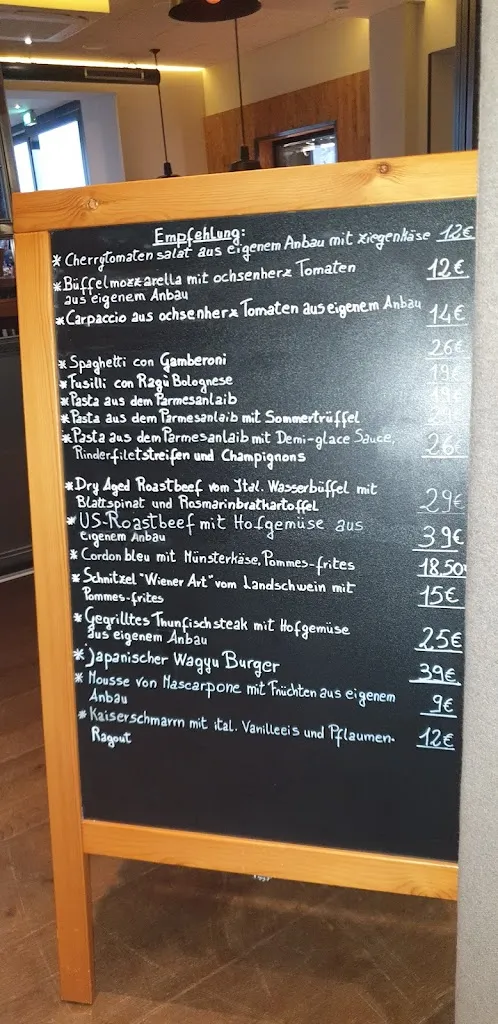 Empfehlung:
* Cherrytomaten salat aus eigenem Anbau mit ziegenkäse 12€
* Büffelmozzarella mit ochsenherz Tomaten 12€
aus eigenem Anbau
* Carpaccio aus ochsenherz Tomaten aus eigenem Anbau 14€
* Spaghetti con Gamberoni 26€
* Fusilli con Ragù Bolognese 19€
* Pasta aus dem Parmesanlaib
* Pasta aus dem Parmesanlaib mit Sommertrüffel
* Pasta aus dem Parmesanlaib mit Demi-glace Sauce, 26€
Rinderfiletstreifen und Champignons
* Dry Aged Roastbeef vom Ital. Wasserbüffel mit 29€
Blattspinat und Rosmarinbrathartoffel
* US-Roastbeef mit Hofgemüse aus 39€
eigenem Anbau
* Cordon bleu mit Münsterkäse, Pommes-frites 18.50
* Schnitzel "Wiener Art" vom Landschwein mit 15€
Pommes-frites
* Gegrilltes Thunfischsteak mit Hofgemüse 25€
aus eigenem Anbau
* Japanischer Wagyu Burger 39€
* Mousse von Mascarpone mit Früchten aus eigenem 9€
Anbau
* Kaiserschmarrn mit ital. Vanilleeis und Pflaumen- 12€
Ragout